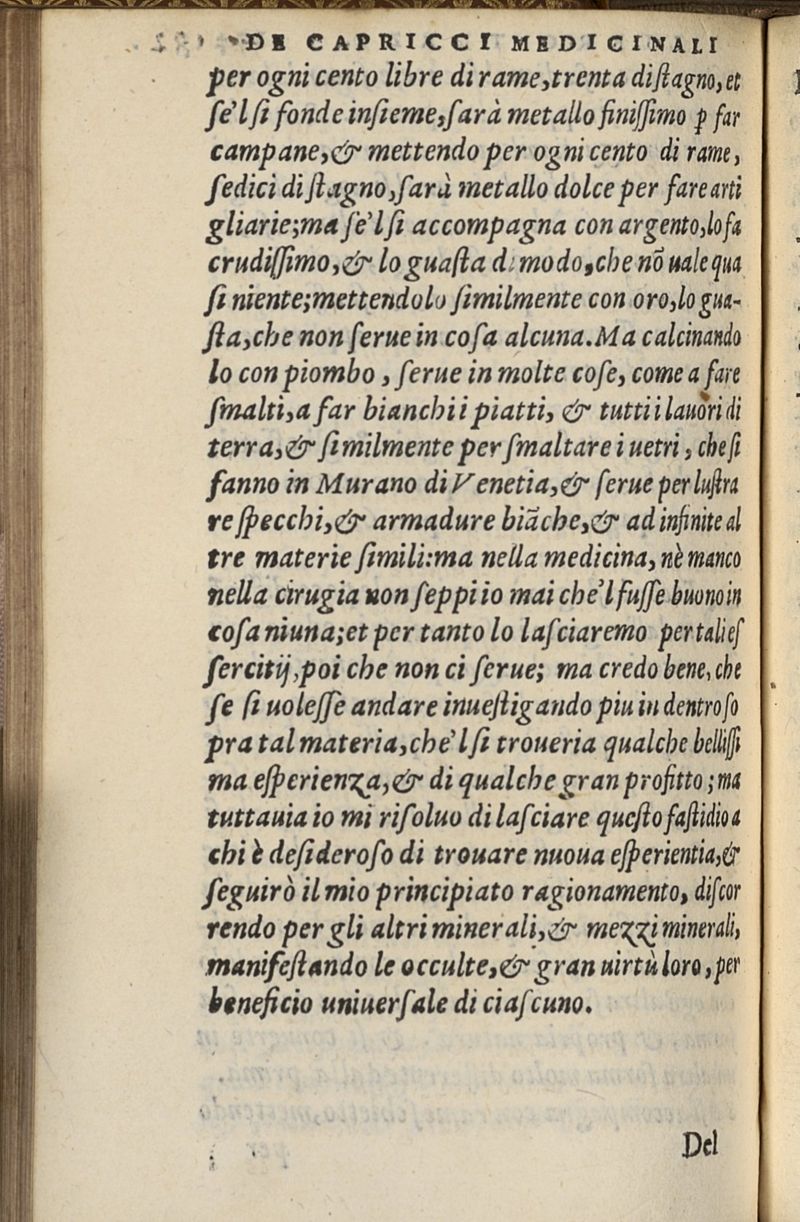 DE CAPRICCI MEDICINALI
per ogni cento libre di rame,trenta di ſtagno, et
ſe'l ſi fonde inſieme,ſarà metallo finiſſimo ꝑ far
campane,& mettendo per ogni cento di rame,
ſedici di ſtagno,ſarà metallo dolce per fare arti
gliarie;ma ſe'l ſi accompagna con argento,lo fa
crudiſſimo,& lo guaſta di modo,che nõ uale qua
ſi niente;mettendolo ſimilmente con oro,lo gua-
ſta,che non ſerue in coſa alcuna.Ma calcinando
lo con piombo , ſerue in molte coſe, come a fare
ſmalti,a far bianchi i piatti, & tutti i lauori di
terra,& ſimilmente per ſmaltare i uetri , che ſi
fanno in Murano di Venetia,& ſerue per luſtra
re ſpecchi,& armadure biãche,& ad infinite al
tre materie ſimili:ma nella medicina, nè manco
nella cirugia non ſeppi io mai che'l fuſſe buono in
coſa niuna;et per tanto lo laſciaremo per tali eſ
ſercitij,poi che non ci ſerue; ma credo bene, che
ſe ſi uoleſſe andare inueſtigando piu in dentro ſo
pra tal materia,che'l ſi troueria qualche belliſſi
ma eſperienza,& di qualche gran profitto ; ma
tuttauia io mi riſoluo di laſciare queſto faſtidio a
chi è deſideroſo di trouare nuoua eſperientia,&
ſeguirò il mio principiato ragionamento, diſcor
rendo per gli altri minerali,& mezzi minerali,
manifeſtando le occulte,& gran uirtù loro , per
beneficio uniuerſale di ciaſcuno.
Del